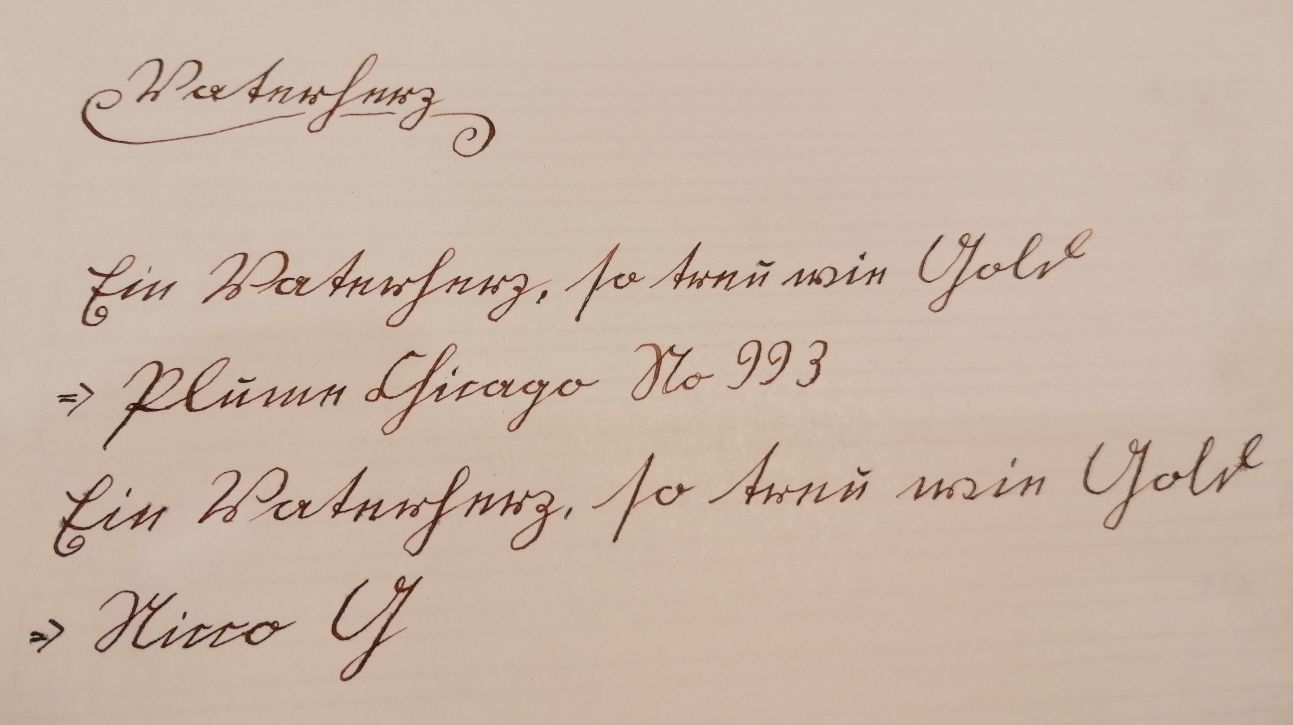 Vaterherz
Ein Vaterherz, so treu wie Gold
=> Plume Chicago No 993
Ein Vaterherz, so treu wie Gold
=> Nicco G